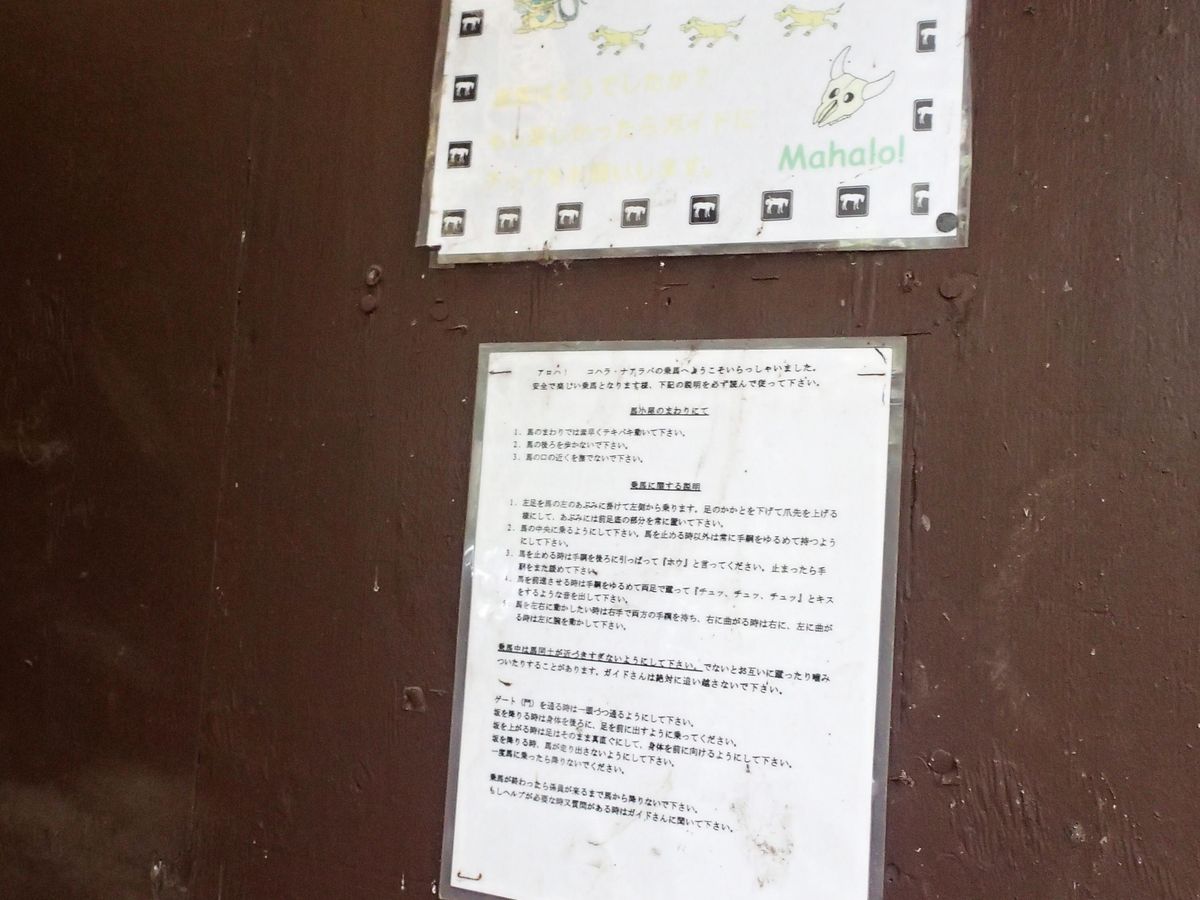 乗馬はどうでしたか？
もし楽しかったらガイドに
チップをお願いします。
Mahalo!
アロハ！ コハラ・ナアラパの乗馬へようこそいらっしゃいました。
安全で楽しい乗馬となります様、下記の説明を必ず読んで従って下さい。
馬小屋のまわりにて
1. 馬のまわりでは素早くテキパキ動いて下さい。
2. 馬の後ろを歩かないで下さい。
3. 馬の口の近くを撫でないで下さい。
乗馬に関する説明
1. 左足を馬の左のあぶみに掛けて左側から乗ります。足のかかとを下げて爪先を上げる
様にして、あぶみには前足底の部分を常に置いて下さい。
2. 馬の中央に乗るようにして下さい。馬を止める時以外は常に手綱をゆるめて持つよう
にして下さい。
3. 馬を止める時は手綱を後ろに引っぱって『ホウ』と言ってください。止まったら手
綱をまた緩めて下さい。
4. 馬を前進させる時は手綱をゆるめて両足で蹴って『チュッ、チュッ、チュッ』とキス
をするような音を出して下さい。
馬を左右に動かしたい時は右手で両方の手綱を持ち、右に曲がる時は右に、左に曲が
る時は左に腕を動かして下さい。
乗馬中は馬同士が近づきすぎないようにして下さい。でないとお互いに蹴ったり噛み
ついたりすることがあります。ガイドさんは絶対に追い越さないで下さい。
ゲート（門）を通る時は一頭づつ通るようにして下さい。
坂を降りる時は身体を後ろに、足を前に出すように乗ってください。
坂を上がる時は足はそのまま真直ぐにして、身体を前に向けるようにして下さい。
坂を降りる時、馬が走り出さないようにして下さい。
一度馬に乗ったら降りないでください。
乗馬が終わったら係員が来るまで馬から降りないで下さい。
もしヘルプが必要な時又質問がある時はガイドさんに聞いて下さい。